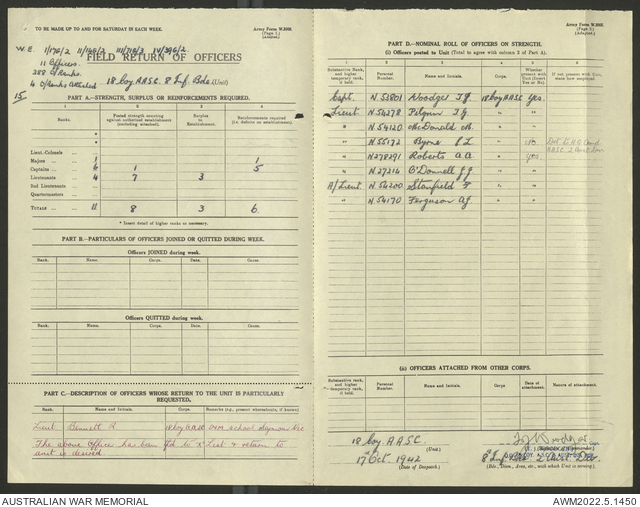 TO BE MADE UP TO AND FOR SATURDAY IN EACH WEEK.
Army Form W.3008
(Page 1.)
(Adapted.)
W.E.
11 Officers.
288 O/Ranks.
4 O/Ranks Attached
FIELD RETURN OF OFFICERS
18 Coy A.A.S.C. 8 Inf. Bde. (Unit)
15
PART A.—STRENGTH, SURPLUS OR REINFORCEMENTS REQUIRED.
1 2 3 4
Posted strength counting against authorised establishment (excluding attached).
Surplus to Establishment.
Reinforcements required (i.e. deficits on establishment).
Lieut.-Colonels
Majors 1 1
Captains 6 1 5
Lieutenants 4 7 3
2nd Lieutenants
Quartermasters
TOTALS 11 8 3 6
* Insert detail of higher ranks as necessary.
PART B.—PARTICULARS OF OFFICERS JOINED OR QUITTED DURING WEEK.
Officers JOINED during week.
Rank. Name. Corps. Date. Cause.
Officers QUITTED during week.
Rank. Name. Corps. Date. Cause.
PART C.—DESCRIPTION OF OFFICERS WHOSE RETURN TO THE UNIT IS PARTICULARLY REQUESTED.
Rank. Name and Initials. Corps. Remarks (e.g., present whereabouts, if known)
Lieut Bennett R. 18 Coy AASC school Seymour Vic
The above Officer has been to "X" List & return to
unit is desired
PART D.—NOMINAL ROLL OF OFFICERS ON STRENGTH.
(i) Officers posted to Unit (Total to agree with column 2 of Part A).
1 2 3 4 5 6
Substantive Rank, and higher temporary rank, if held.
Personal Number.
Name and Initials.
Corps.
Whether present with Unit (Insert Yes or No).
If not present with Unit, state how employed.
Capt. N53801 Woodger T.J. 18 Coy AASC Yes.
Lieut N54278 Pilgrim T.G. " "
" N54120 McDonald M. " "
" N55172 Byrne E.L. " No
" N278291 Roberts A.A. " Yes.
" N27214 O'Donnell J.J. " "
A/Lieut N54200 Stanfield F. " "
" N54170 Ferguson A.J. " "
(ii) OFFICERS ATTACHED FROM OTHER CORPS.
Substantive rank, and higher temporary rank, if held.
Personal Number.
Name and Initials.
Corps.
Date of attachment.
Nature of attachment.
18 Coy. A.A.S.C.
(Unit.)
17 Oct. 1942
(Date of Despatch.)
8 Inf Bde 2 Aust. Div.
(Bde., Divn., Area, etc., with which Unit is serving.)
AUSTRALIAN WAR MEMORIAL
AWM2022.5.1450